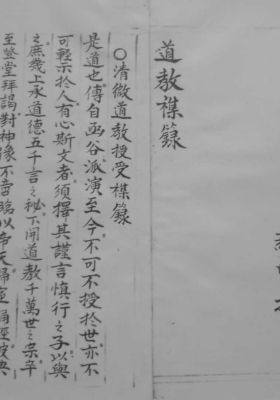 道教襍錄
○清微道教授受襍錄
是道也傳自函谷派演至今不可不授於世亦不
可輕示於人有心斯文者須擇其謹言慎行之子以與
之庶幾上承道德五千言之秘下開道教千萬世之宗辛
至登堂拜謁對神像不啻臨以帝天